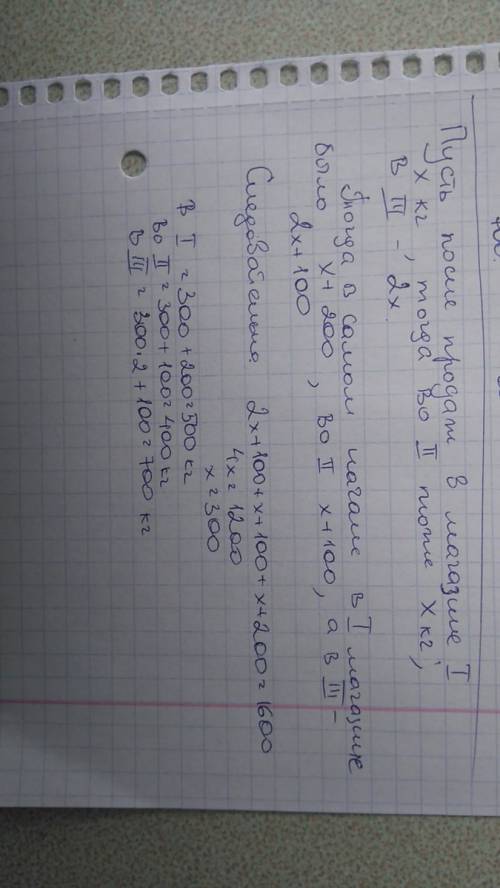 Пусть после продаж в магазине I
х кг тогда во II тоже х кг,
в III -, 2х.
Тогда в самом начале в I магазине
было х+200, во II х+100, а в III -
2х+100
Следовательно 2х+100+х+100+х+200=1600
4х=1200
х=300
В I = 300+200=500 кг
Во II = 300+100=400 кг
В III = 300·2+100=700 кг